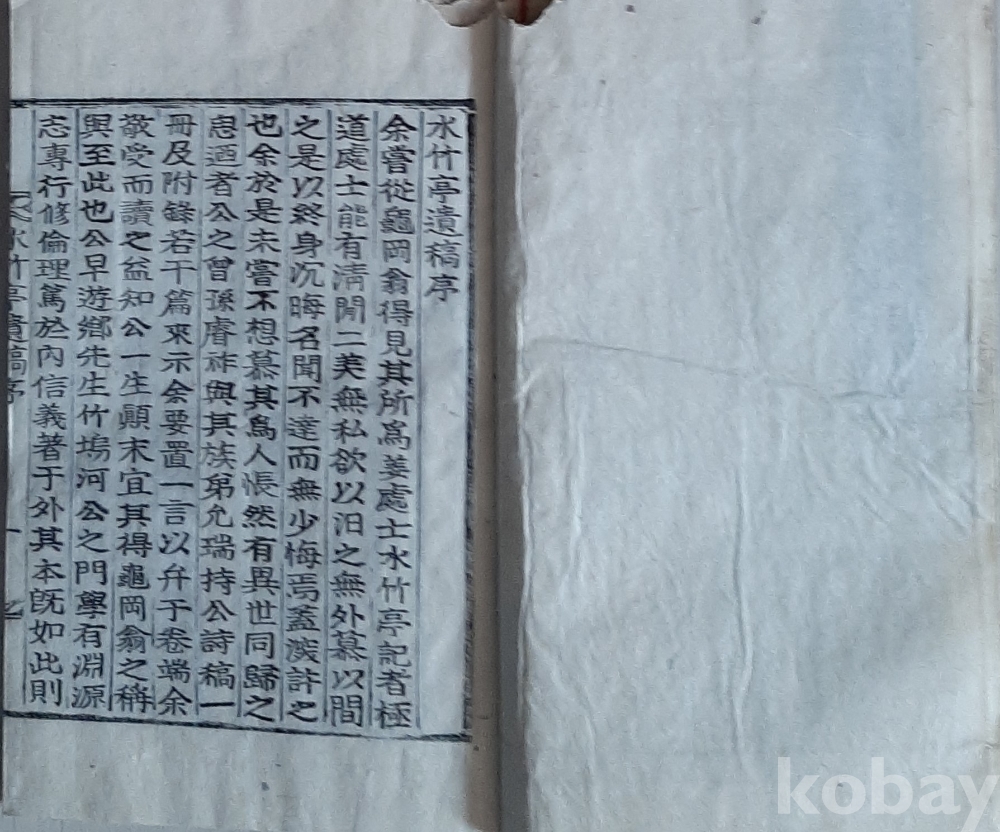 水竹亭遺稿序
余嘗從龜岡翁得見其所爲姜處士水竹亭記者極
道處士能有淸閒二美無私欲以汨之無外慕以間
之是以終身沉晦名聞不達而無少悔焉蓋深許之
也余於是未嘗不想慕其爲人悵然有異世同歸之
思迺者公之曾孫濬祚與其族弟允瑞持公詩稿一
冊及附錄若干篇來示余要置一言以弁于卷端余
敬受而讀之益知公一生顚末宜其得龜岡翁之稱
與至此也公早遊鄕先生竹塢河公之門學有淵源
志專行修倫理篤於內信義著于外其本旣如此則
水竹亭遺稿序 一
kobay